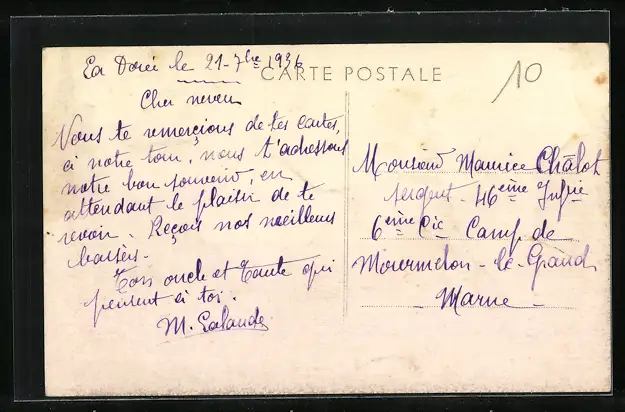 La Dorée le 21-7bre 1936
CARTE POSTALE
10
Cher neveu
Nous te remerçions de tes cartes,
à notre tour, nous t'adressons
notre bon souvenir, en
attendant le plaisir de te
revoir. Reçois nos meilleurs
baisers.
Ton oncle et Tante qui
pensent à toi.
M. Lalande
Monsieur Maurice Châlot
sergent. 46ème Infrie
6ème Cie Camp de
Mourmelon-le-Grand
Marne